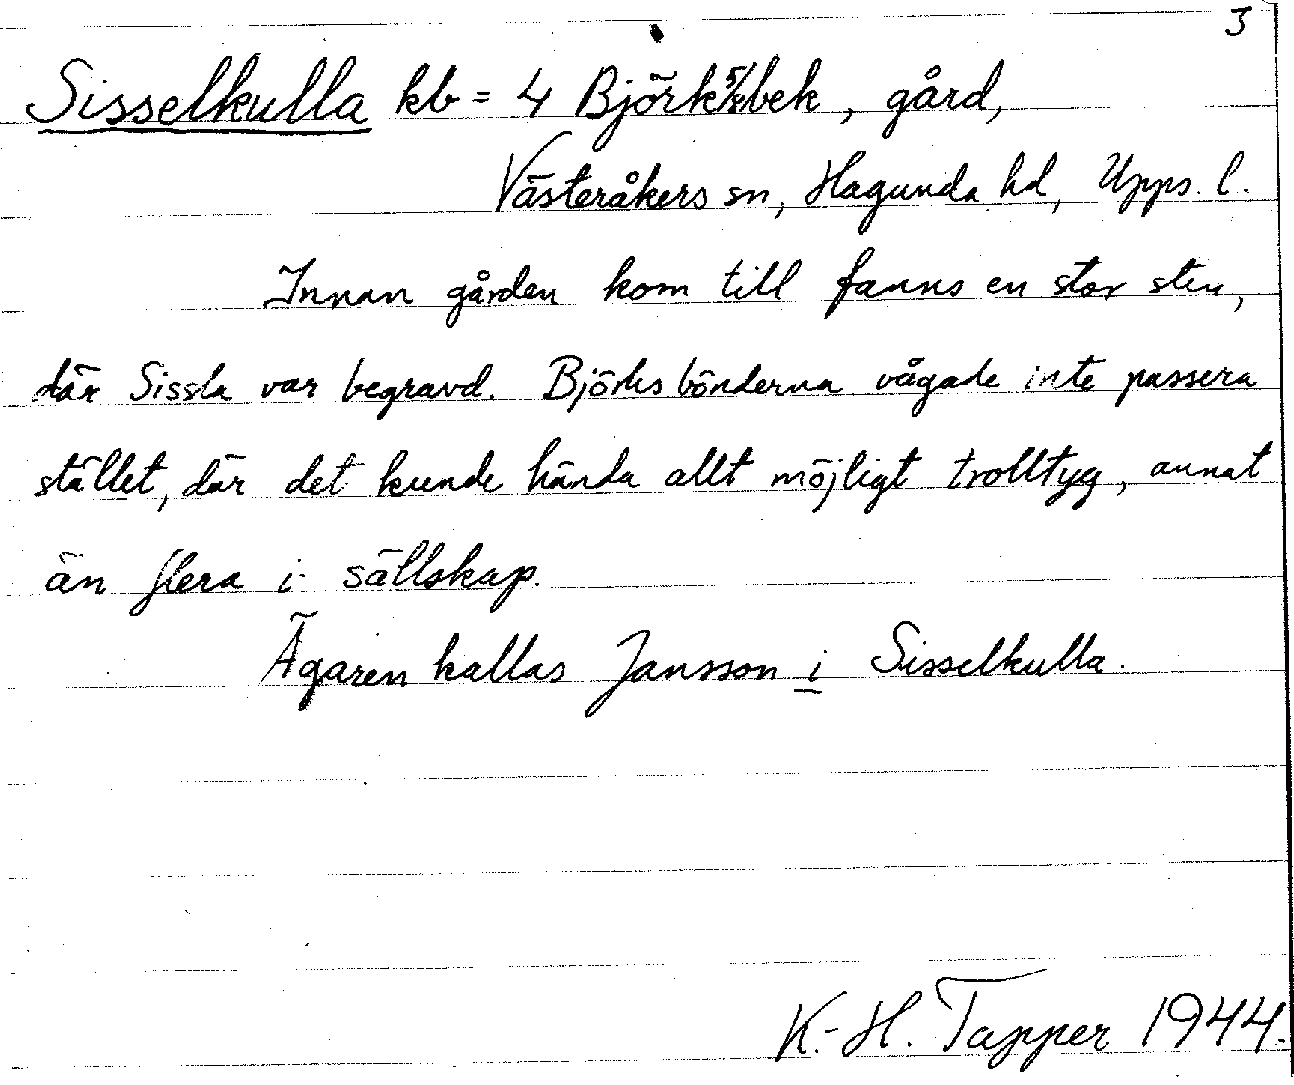 3
Sisselkulla kb = 4 Björk 5/k bek, gård,
Västeråkers sn, Hagunda hd, Upps. l.
Innan gården kom till fanns en stor sten,
där Sissla var begravd. Björksbönderna vågade inte passera
stället, där det kunde hända allt möjligt trolltyg, annat
än flera i sällskap.
Ägaren kallas Jansson i Sisselkulla.
K.-H. Tapper 1944.